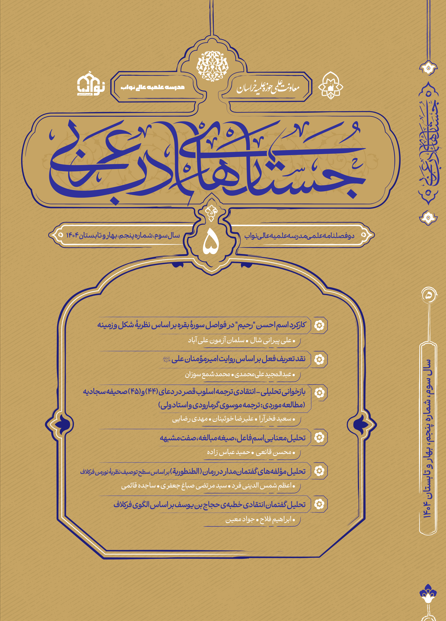 معاونت علمی حوزه علمیه خراسان
مدرسه علمیه عالی نواب
نواب
جستارهای ادب عربی
دوفصلنامه علمی مدرسه علمیه عالی نواب
۵
سال سوم، شماره پنجم، بهار و تابستان ۱۴۰۴
کارکرد اسم احسن "رحیم" در فواصل سورۀ بقره بر اساس نظریۀ شکل و زمینه
• علی پیرانی شال • سلمان آزمون علی آباد
نقد تعریف فعل بر اساس روایت امیرمؤمنان علی
• عبدالمجید علی‌محمدی • محمد شمع سوزان
بازخوانی تحلیلی - انتقادی ترجمه اسلوب قصر در دعای (۴۴) و (۴۵) صحیفه سجادیه
(مطالعه موردی: ترجمه موسوی گرمارودی و استاد ولی)
• سعید فخرآرا • علیرضا خوئینان • مهدی رضایی
تحلیل معنایی اسم فاعل، صیغه مبالغه، صفت مشبهه
• محسن قانعی • حمید عباس زاده
تحلیل مؤلفه‌های گفتمان‌مدار در رمان (الطنطوریة) بر اساس سطح توصیف نظریۀ نورمن فرکلاف
• اعظم شمس الدینی فرد • سید مرتضی صباغ جعفری • ساجده قائمی
تحلیل گفتمان انتقادی خطبه‌ی حجاج بن یوسف بر اساس الگوی فرکلاف
• ابراهیم فلاح • جواد معین
جستارهای ادب عربی
۵
سال سوم، شماره پنجم، بهار و تابستان ۱۴۰۴